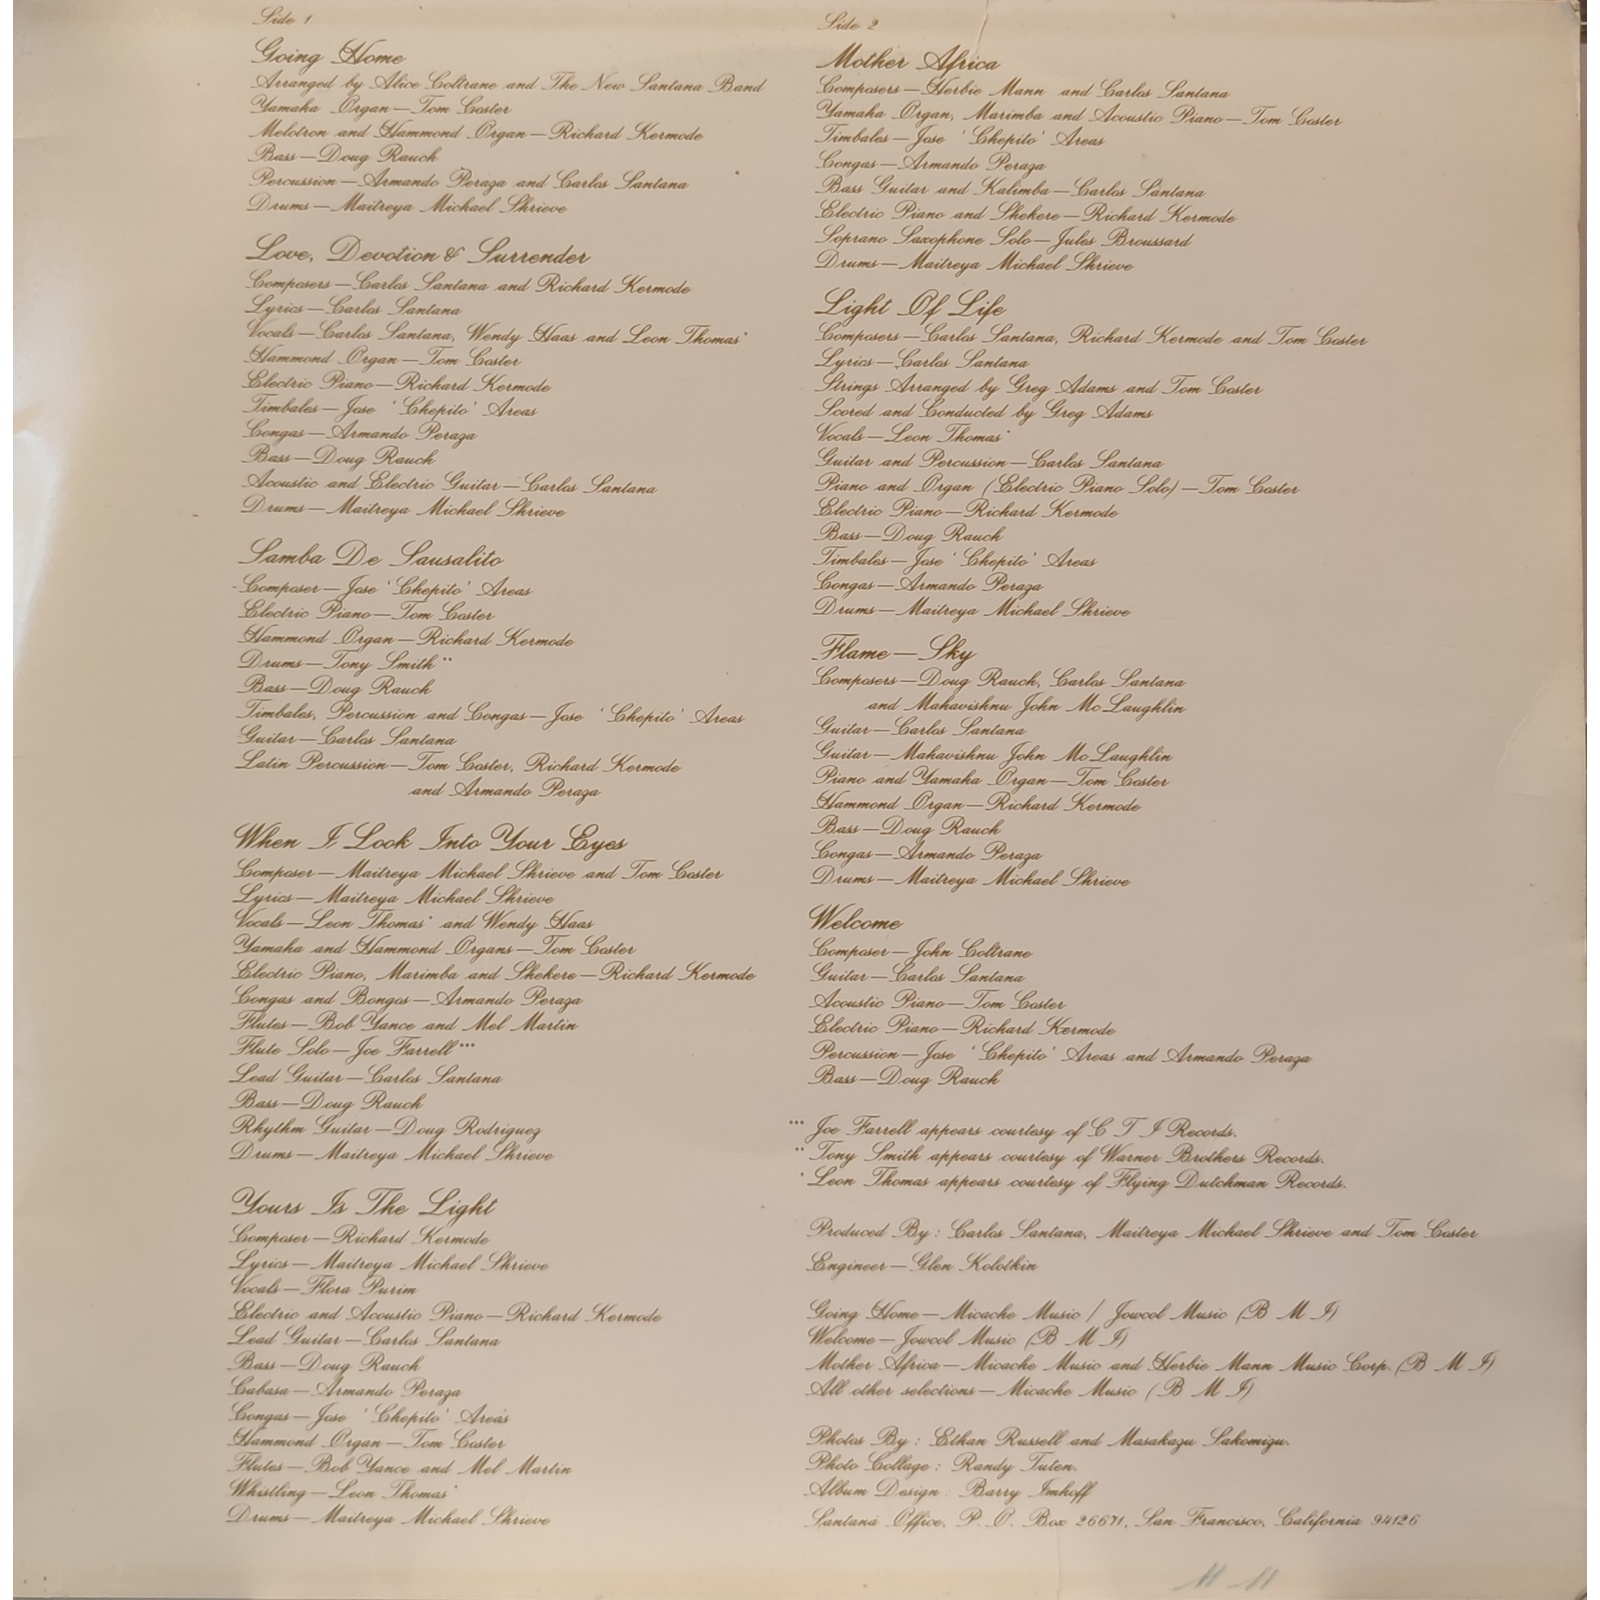 Side 1
Going Home
Arranged by Alice Coltrane and The New Santana Band
Yamaha Organ—Tom Coster
Melotron and Hammond Organ—Richard Kermode
Bass—Doug Rauch
Percussion—Armando Peraza and Carlos Santana
Drums—Maitreya Michael Shrieve
Love, Devotion & Surrender
Composers—Carlos Santana and Richard Kermode
Lyrics—Carlos Santana
Vocals—Carlos Santana, Wendy Haas and Leon Thomas*
Hammond Organ—Tom Coster
Electric Piano—Richard Kermode
Timbales—Jose 'Chepito' Areas
Congas—Armando Peraza
Bass—Doug Rauch
Acoustic and Electric Guitar—Carlos Santana
Drums—Maitreya Michael Shrieve
Samba De Sausalito
Composer—Jose 'Chepito' Areas
Electric Piano—Tom Coster
Hammond Organ—Richard Kermode
Drums—Tony Smith**
Bass—Doug Rauch
Timbales, Percussion and Congas—Jose 'Chepito' Areas
Guitar—Carlos Santana
Latin Percussion—Tom Coster, Richard Kermode
and Armando Peraza
When I Look Into Your Eyes
Composer—Maitreya Michael Shrieve and Tom Coster
Lyrics—Maitreya Michael Shrieve
Vocals—Leon Thomas* and Wendy Haas
Yamaha and Hammond Organs—Tom Coster
Electric Piano, Marimba and Shekere—Richard Kermode
Congas and Bongos—Armando Peraza
Flutes—Bob Yance and Mel Martin
Flute Solo—Joe Farrell***
Lead Guitar—Carlos Santana
Bass—Doug Rauch
Rhythm Guitar—Doug Rodriguez
Drums—Maitreya Michael Shrieve
Yours Is The Light
Composer—Richard Kermode
Lyrics—Maitreya Michael Shrieve
Vocals—Flora Purim
Electric and Acoustic Piano—Richard Kermode
Lead Guitar—Carlos Santana
Bass—Doug Rauch
Cabasa—Armando Peraza
Congas—Jose 'Chepito' Areas
Hammond Organ—Tom Coster
Flutes—Bob Yance and Mel Martin
Whistling—Leon Thomas*
Drums—Maitreya Michael Shrieve
Side 2
Mother Africa
Composers—Herbie Mann and Carlos Santana
Yamaha Organ, Marimba and Acoustic Piano—Tom Coster
Timbales—Jose 'Chepito' Areas
Congas—Armando Peraza
Bass Guitar and Kalimba—Carlos Santana
Electric Piano and Shekere—Richard Kermode
Soprano Saxophone Solo—Jules Broussard
Drums—Maitreya Michael Shrieve
Light Of Life
Composers—Carlos Santana, Richard Kermode and Tom Coster
Lyrics—Carlos Santana
Strings Arranged by Greg Adams and Tom Coster
Scored and Conducted by Greg Adams
Vocals—Leon Thomas*
Guitar and Percussion—Carlos Santana
Piano and Organ (Electric Piano Solo)—Tom Coster
Electric Piano—Richard Kermode
Bass—Doug Rauch
Timbales—Jose 'Chepito' Areas
Congas—Armando Peraza
Drums—Maitreya Michael Shrieve
Flame—Sky
Composers—Doug Rauch, Carlos Santana
and Mahavishnu John McLaughlin
Guitar—Carlos Santana
Guitar—Mahavishnu John McLaughlin
Piano and Yamaha Organ—Tom Coster
Hammond Organ—Richard Kermode
Bass—Doug Rauch
Congas—Armando Peraza
Drums—Maitreya Michael Shrieve
Welcome
Composer—John Coltrane
Guitar—Carlos Santana
Acoustic Piano—Tom Coster
Electric Piano—Richard Kermode
Percussion—Jose 'Chepito' Areas and Armando Peraza
Bass—Doug Rauch
***Joe Farrell appears courtesy of C T I Records.
**Tony Smith appears courtesy of Warner Brothers Records.
*Leon Thomas appears courtesy of Flying Dutchman Records.
Produced By: Carlos Santana, Maitreya Michael Shrieve and Tom Coster
Engineer—Glen Kolotkin
Going Home—Micache Music / Jowcol Music (B M I)
Welcome—Jowcol Music (B M I)
Mother Africa—Micache Music and Herbie Mann Music Corp. (B M I)
All other selections—Micache Music (B M I)
Photos By: Ethan Russell and Masakazu Sakomizu.
Photo Collage: Randy Tuten.
Album Design: Barry Imhoff
Santana Office, P. O. Box 26671, San Francisco, California 94126